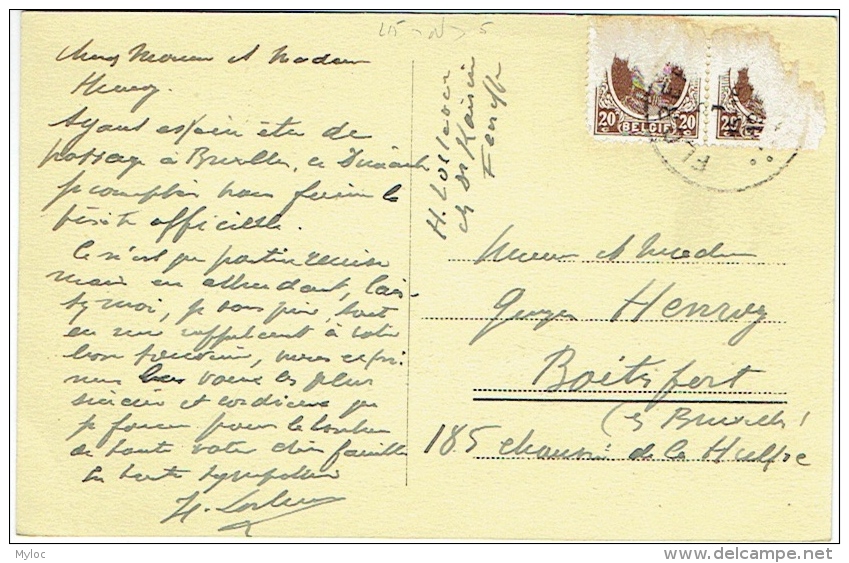 Chers Monsieur et Madame
Henroy.
Ayant espéré être de
passage à Bruxelles, ce Dimanche
je comptais vous faire la
visite officielle.
Ce n'est que partie remise
mais en attendant, lais-
sez moi, je vous prie, tout
en me rappelant à votre
bon souvenir, vous expri
mer les vœux les plus
sincères et cordiaux que
je forme pour le bonheur
de toute votre chère famille
En toute sympathie
H.
H.
ch Dr
20
BELGIE
20
20
Monsieur et Madame
Georges Henroy
Boitsfort
(Bruxelles)
185 chaussée de la Hulpe
Myloc
delcampe.net